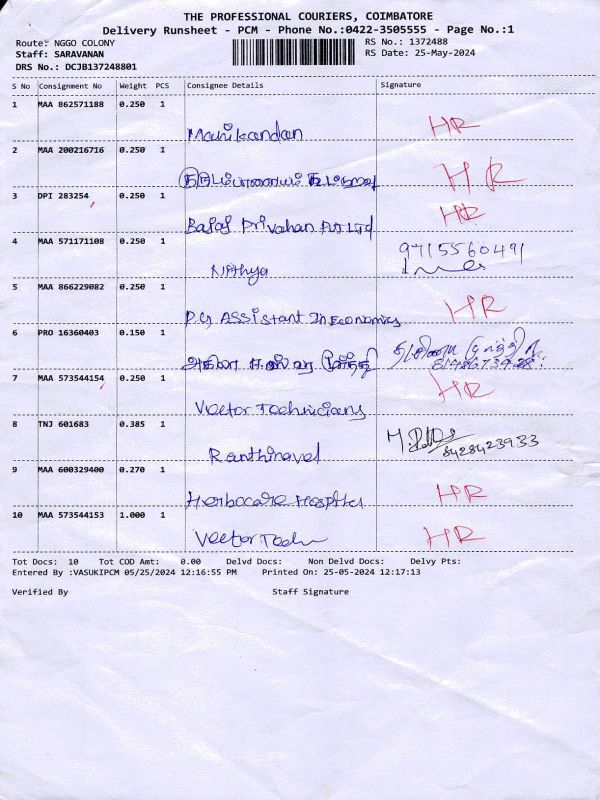 THE PROFESSIONAL COURIERS, COIMBATORE
Delivery Runsheet - PCM - Phone No.:0422-3505555 - Page No.:1
Route: NGGO COLONY RS No.: 1372488
Staff: SARAVANAN RS Date: 25-May-2024
DRS No.: DCJB137248801
S No Consignment No Weight PCS Consignee Details Signature
1 MAA 862571188 0.250 1
Manikandan HR
2 MAA 200216716 0.250 1
HR
3 DPI 283254 0.250 1
Bajaj Privahan Pvt Ltd HR
4 MAA 571171108 0.250 1 9715560491
Nithya
5 MAA 866229082 0.250 1
P.G Assistant In Economics HR
6 PRO 16360403 0.150 1
7 MAA 573544154 0.250 1 HR
Vector Technicians
8 TNJ 601683 0.385 1
Ranthinavel 8428423933
9 MAA 600329400 0.270 1
Herbocare Hospital HR
10 MAA 573544153 1.000 1
Vector Tech HR
Tot Docs: 10 Tot COD Amt: 0.00 Delvd Docs: Non Delvd Docs: Delvy Pts:
Entered By :VASUKIPCM 05/25/2024 12:16:55 PM Printed On: 25-05-2024 12:17:13
Verified By Staff Signature